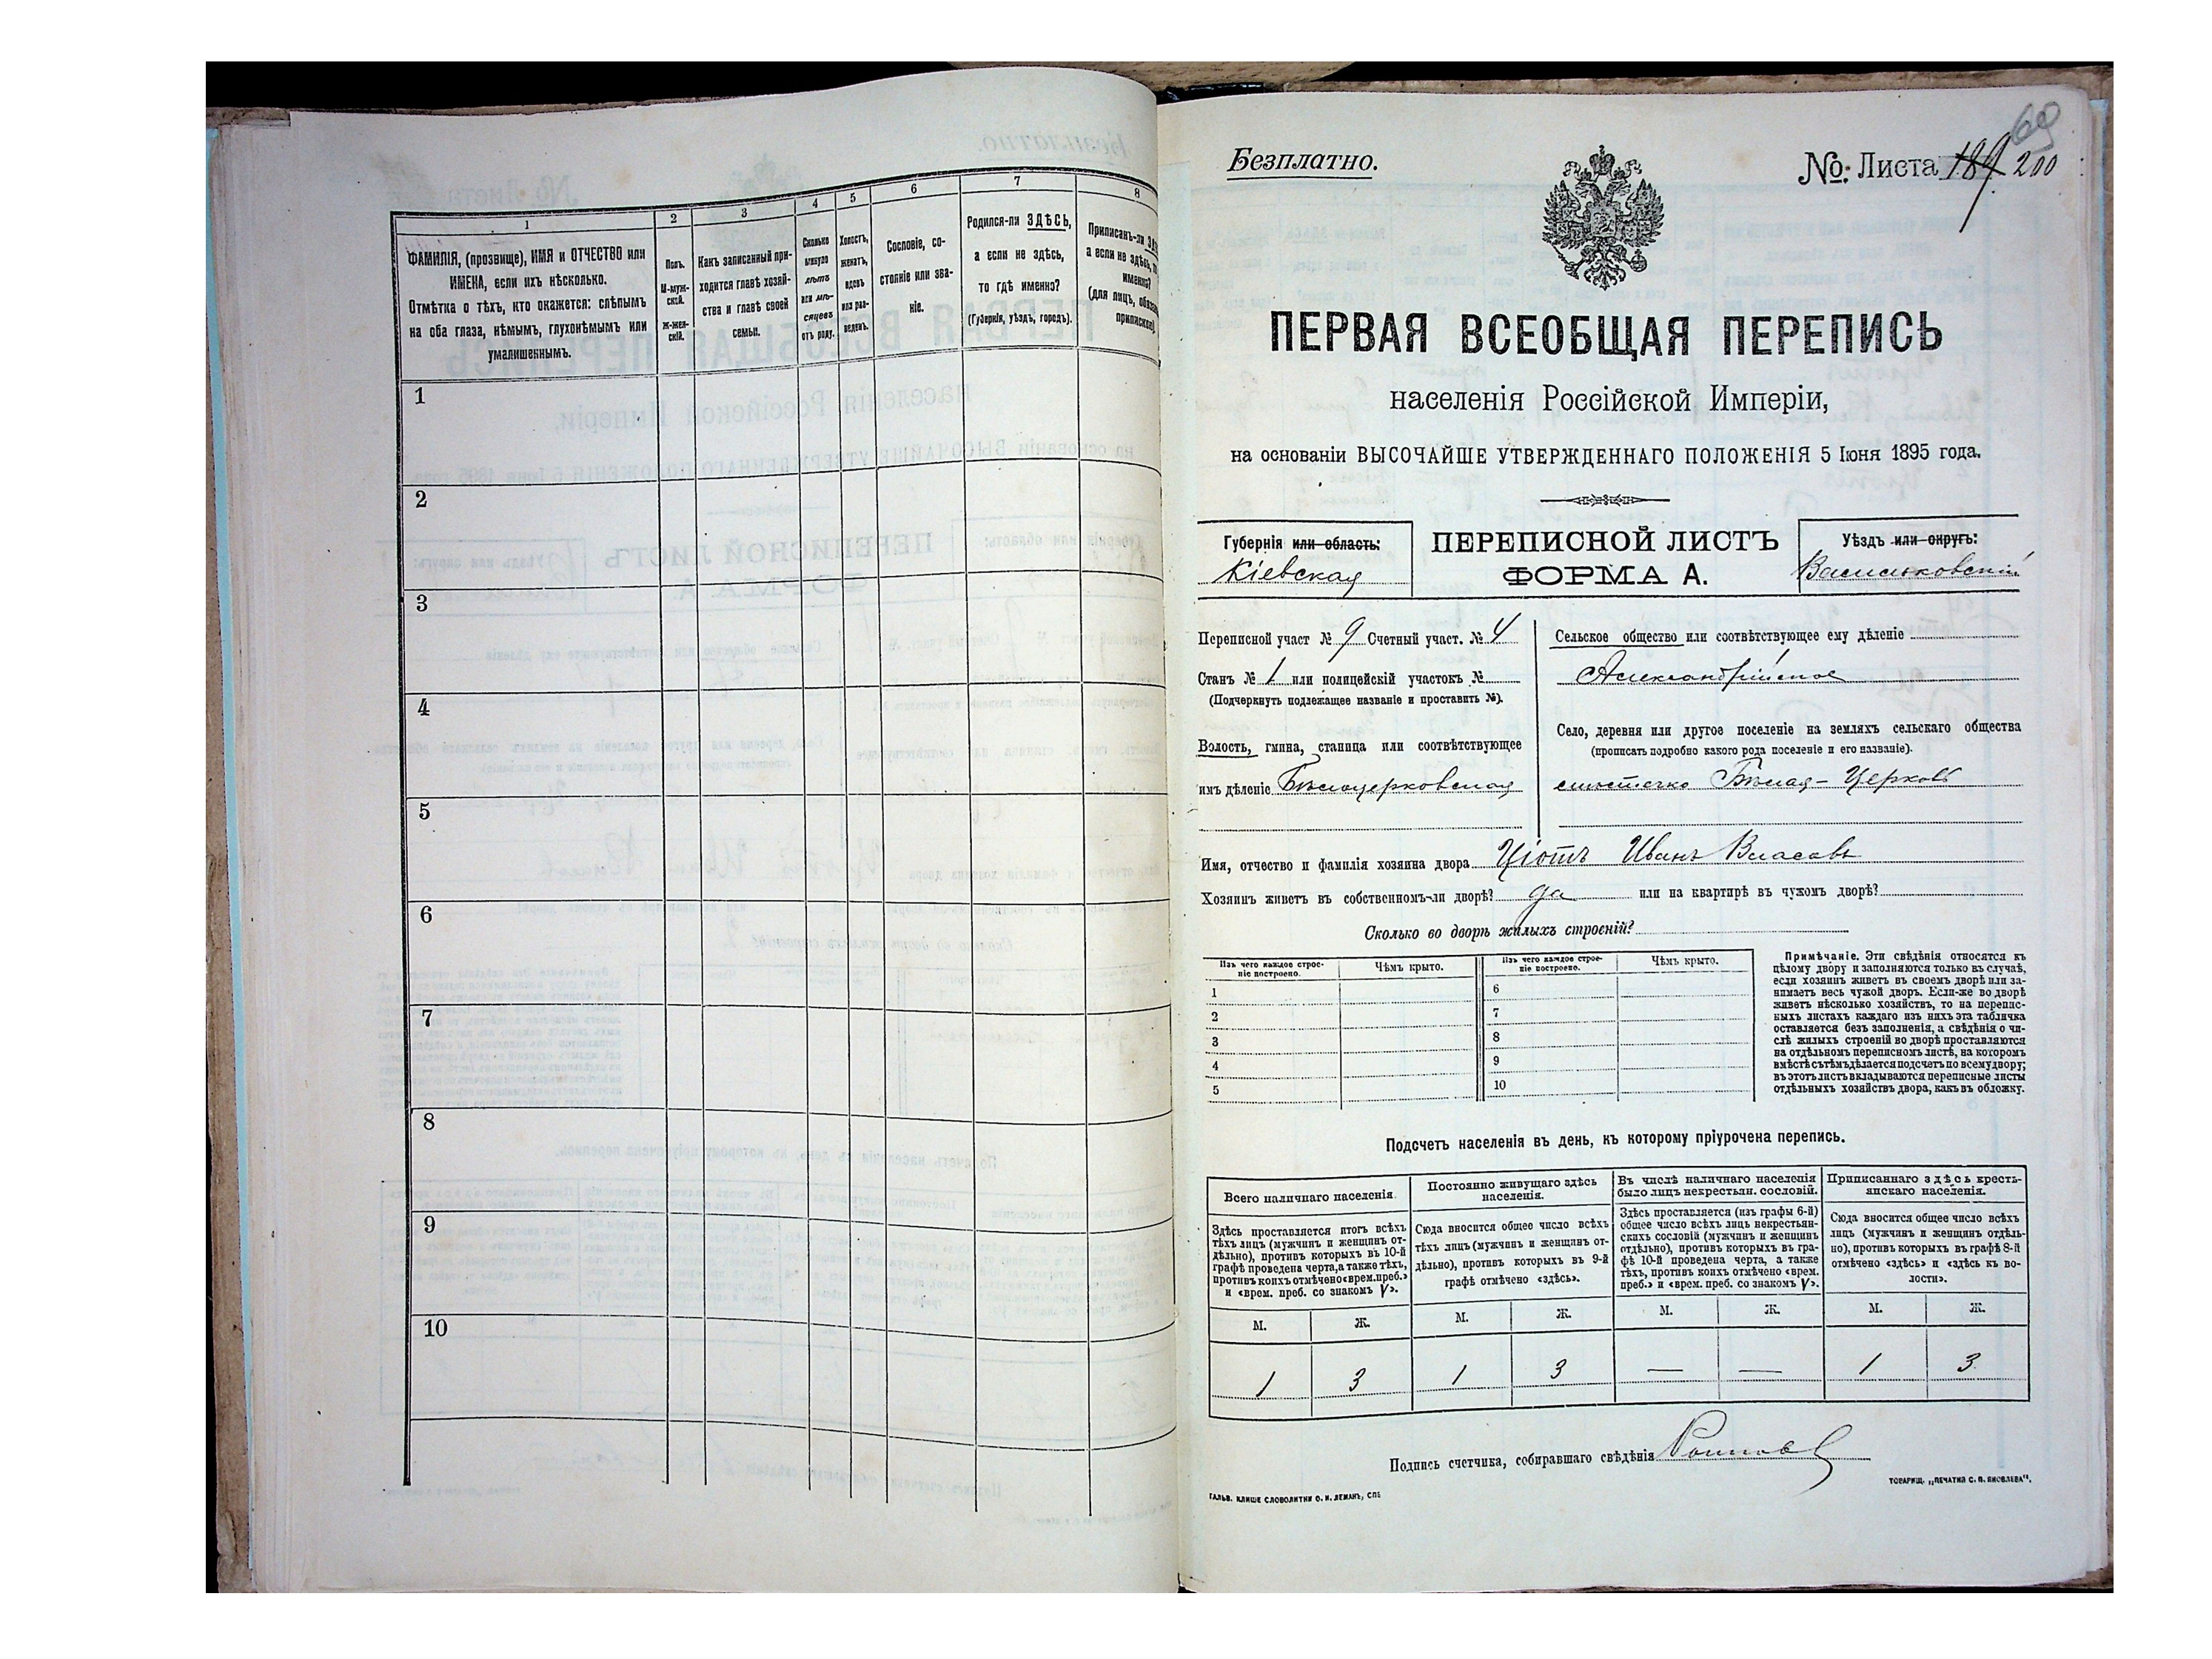 1
2
3
4
5
6
7
8
ФАМИЛІЯ, (прозвище), ИМЯ и ОТЧЕСТВО или
ИМЕНА, если ихъ нѣсколько.
Отмѣтка о тѣхъ, кто окажется: слѣпымъ
на оба глаза, нѣмымъ, глухонѣмымъ или
умалишеннымъ.
Полъ.
М-муж-
ской.
Ж-жен-
скій.
Какъ записанный при-
ходится главѣ хозяй-
ства и главѣ своей
семьи.
Сколько
минуло
лѣтъ
или мѣ-
сяцевъ
отъ роду.
Холостъ,
женатъ,
вдовъ
или раз-
веденъ.
Сословіе, со-
стояніе или зва-
ніе.
Родился-ли ЗДѢСЬ,
а если не здѣсь,
то гдѣ именно?
(Губернія, уѣздъ, городъ).
Приписанъ-ли
а если не здѣсь,
именно?
(для лицъ,
1
2
3
4
5
6
7
8
9
10
69
Безплатно.
№: Листа 189 200
ПЕРВАЯ ВСЕОБЩАЯ ПЕРЕПИСЬ
населенія Россійской Имперіи,
на основаніи ВЫСОЧАЙШЕ УТВЕРЖДЕННАГО ПОЛОЖЕНІЯ 5 Іюня 1895 года.
Губернія или область:
Кіевская
ПЕРЕПИСНОЙ ЛИСТЪ
ФОРМА А.
Уѣздъ или округъ:
Васильковскій
Переписной участ № 9 Счетный участ. № 4
Станъ № 1 или полицейскій участокъ №
(Подчеркнуть подлежащее названіе и проставить №).
Волость, гмина, станица или соотвѣтствующее
имъ дѣленіе Бѣлоцерковская
Сельское общество или соотвѣтствующее ему дѣленіе
Александрійское
Село, деревня или другое поселеніе на земляхъ сельскаго общества
(прописать подробно какого рода поселеніе и его названіе).
мѣстечко Бѣлая-Церковь
Имя, отчество и фамилія хозяина двора Ціотъ Иванъ Власовъ
Хозяинъ живетъ въ собственномъ-ли дворѣ? да или на квартирѣ въ чужомъ дворѣ?
Сколько во дворѣ жилыхъ строеній?
Изъ чего каждое строе-
ніе построено.
Чѣмъ крыто.
Изъ чего каждое строе-
ніе построено.
Чѣмъ крыто.
1
2
3
4
5
6
7
8
9
10
Примѣчаніе. Эти свѣдѣнія относятся къ
цѣлому двору и заполняются только въ случаѣ,
если хозяинъ живетъ въ своемъ дворѣ или за-
нимаетъ весь чужой дворъ. Если-же во дворѣ
живетъ нѣсколько хозяйствъ, то на перепис-
ныхъ листахъ каждаго изъ нихъ эта табличка
оставляется безъ заполненія, а свѣдѣнія о чи-
слѣ жилыхъ строеній во дворѣ проставляются
на отдѣльномъ переписномъ листѣ, на которомъ
вмѣстѣ съ тѣмъ дѣлается подсчетъ по всему двору;
въ этотъ листъ вкладываются переписные листы
отдѣльныхъ хозяйствъ двора, какъ въ обложку.
Подсчетъ населенія въ день, къ которому пріурочена перепись.
Всего наличнаго населенія.
Здѣсь проставляется итогъ всѣхъ
тѣхъ лицъ (мужчинъ и женщинъ от-
дѣльно), противъ которыхъ въ 10-й
графѣ проведена черта, а также тѣхъ,
противъ коихъ отмѣчено «врем. преб.»
и «врем. преб. со знакомъ V».
Постоянно живущаго здѣсь
населенія.
Сюда вносится общее число всѣхъ
тѣхъ лицъ (мужчинъ и женщинъ от-
дѣльно), противъ которыхъ въ 9-й
графѣ отмѣчено «здѣсь».
Въ числѣ наличнаго населенія
было лицъ некрестьян. сословій.
Здѣсь проставляется (изъ графы 6-й)
общее число всѣхъ лицъ некрестьян-
скихъ сословій (мужчинъ и женщинъ
отдѣльно), противъ которыхъ въ гра-
фѣ 10-й проведена черта, а также
тѣхъ, противъ коихъ отмѣчено «врем.
преб.» и «врем. преб. со знакомъ V».
Приписаннаго здѣсь кресть-
янскаго населенія.
Сюда вносится общее число всѣхъ
лицъ (мужчинъ и женщинъ отдѣль-
но), противъ которыхъ въ графѣ 8-й
отмѣчено «здѣсь» и «здѣсь къ во-
лости».
М. Ж. М. Ж. М. Ж. М. Ж.
1 3 1 3 — — 1 3
Подпись счетчика, собиравшаго свѣдѣнія
ГАЛЬВ. КЛИШЕ СЛОВОЛИТНИ О. И. ЛЕМАНЪ, СПБ
ТОВАРИЩ. „ПЕЧАТНЯ С. П. ЯКОВЛЕВА".